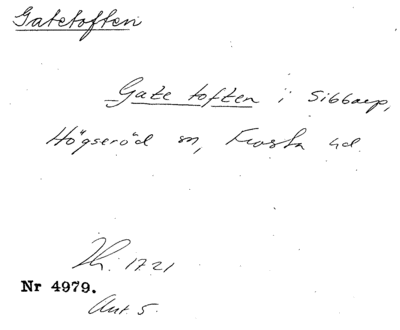 Gatetoften
Gate toften i Sibbarp,
Högseröd sn, Frosta hd.
Th. 1721
Nr 4979.
Ant. 5.